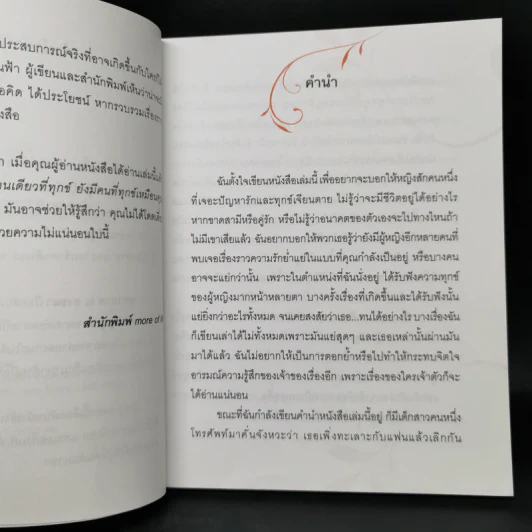 ประสบการณ์จริงที่อาจเกิดขึ้นกับใครก็
ผู้เขียนและสำนักพิมพ์เห็นว่าน่าจะ
ได้ประโยชน์ หากรวบรวมเรื่อง
เมื่อคุณผู้อ่านหนังสือได้อ่านเล่มนี้
นเดียวที่ทุกข์ ยังมีคนที่ทุกข์เหมือน
มันอาจช่วยให้รู้สึกว่า คุณไม่ได้โดดเดี่ยว
วยความไม่แน่นอนใบนี้
สำนักพิมพ์ more of
คำนำ
ฉันตั้งใจเขียนหนังสือเล่มนี้ เพื่ออยากจะบอกให้หญิงสักคนหนึ่ง
ที่เจอะปัญหารักและทุกข์เจียนตาย ไม่รู้ว่าจะมีชีวิตอยู่ได้อย่างไร
หากขาดสามีหรือคู่รัก หรือไม่รู้ว่าอนาคตของตัวเองจะไปทางไหนถ้า
ไม่มีเขาเสียแล้ว ฉันอยากบอกให้พวกเธอรู้ว่ายังมีผู้หญิงอีกหลายคนที่
พบเจอเรื่องราวความรักย่ำแย่ในแบบที่คุณกำลังเป็นอยู่ หรือบางคน
อาจจะแย่กว่านั้น เพราะในตำแหน่งที่ฉันนั่งอยู่ ได้รับฟังความทุกข์
ของผู้หญิงมากหน้าหลายตา บางครั้งเรื่องที่เกิดขึ้นและได้รับฟังนั้น
แย่ยิ่งกว่าอะไรทั้งหมด จนเคยสงสัยว่าเธอ...ทนได้อย่างไร บางเรื่องฉัน
ก็เขียนเล่าได้ไม่ทั้งหมดเพราะมันแย่สุดๆ และเธอเหล่านั้นผ่านมัน
มาได้แล้ว ฉันไม่อยากให้เป็นการตอกย้ำหรือไปทำให้กระทบจิตใจ
อารมณ์ความรู้สึกของเจ้าของเรื่องอีก เพราะเรื่องของใครเจ้าตัวก็จะ
ได้อ่านแน่นอน
ขณะที่ฉันกำลังเขียนคำนำหนังสือเล่มนี้อยู่ ก็มีเด็กสาวคนหนึ่ง
โทรศัพท์มาคั่นจังหวะว่า เธอเพิ่งทะเลาะกับแฟนแล้วเลิกกัน